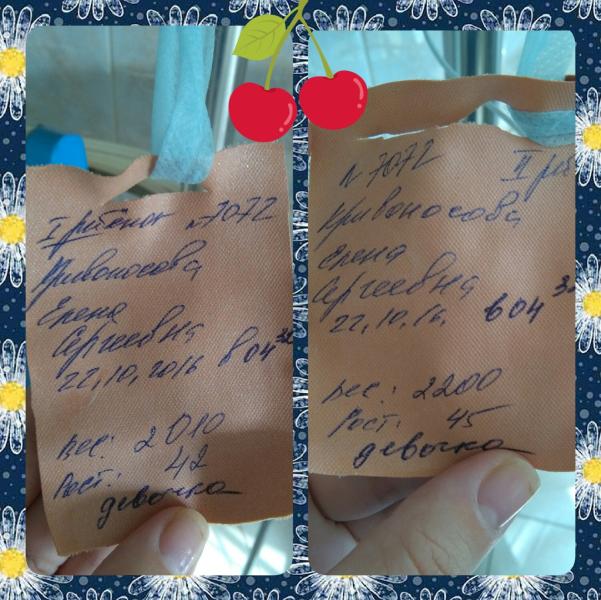 I ребёнок №7072
Кривоносова
Елена
Сергеевна
22,10,2016 в 04 30
Вес: 2010
Рост: 42
девочка
№7072 II реб
Кривоносова
Елена
Сергеевна
22,10,16, в 04
Вес: 2200
Рост: 45
девочка